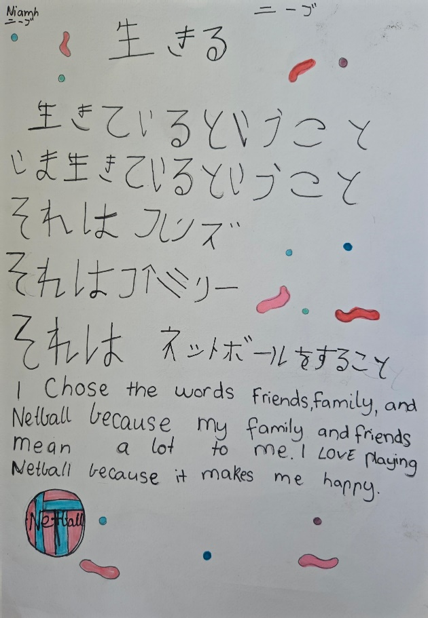 Niamh
ニーブ
ニーブ
生きる
生きているということ
いま生きているということ
それは フレンズ
それはファミリー
それは ネットボールをすること
I Chose the words Friends, family, and
Netball because my family and friends
mean a lot to me. I LOVE playing
Netball because it makes me happy.
Netball